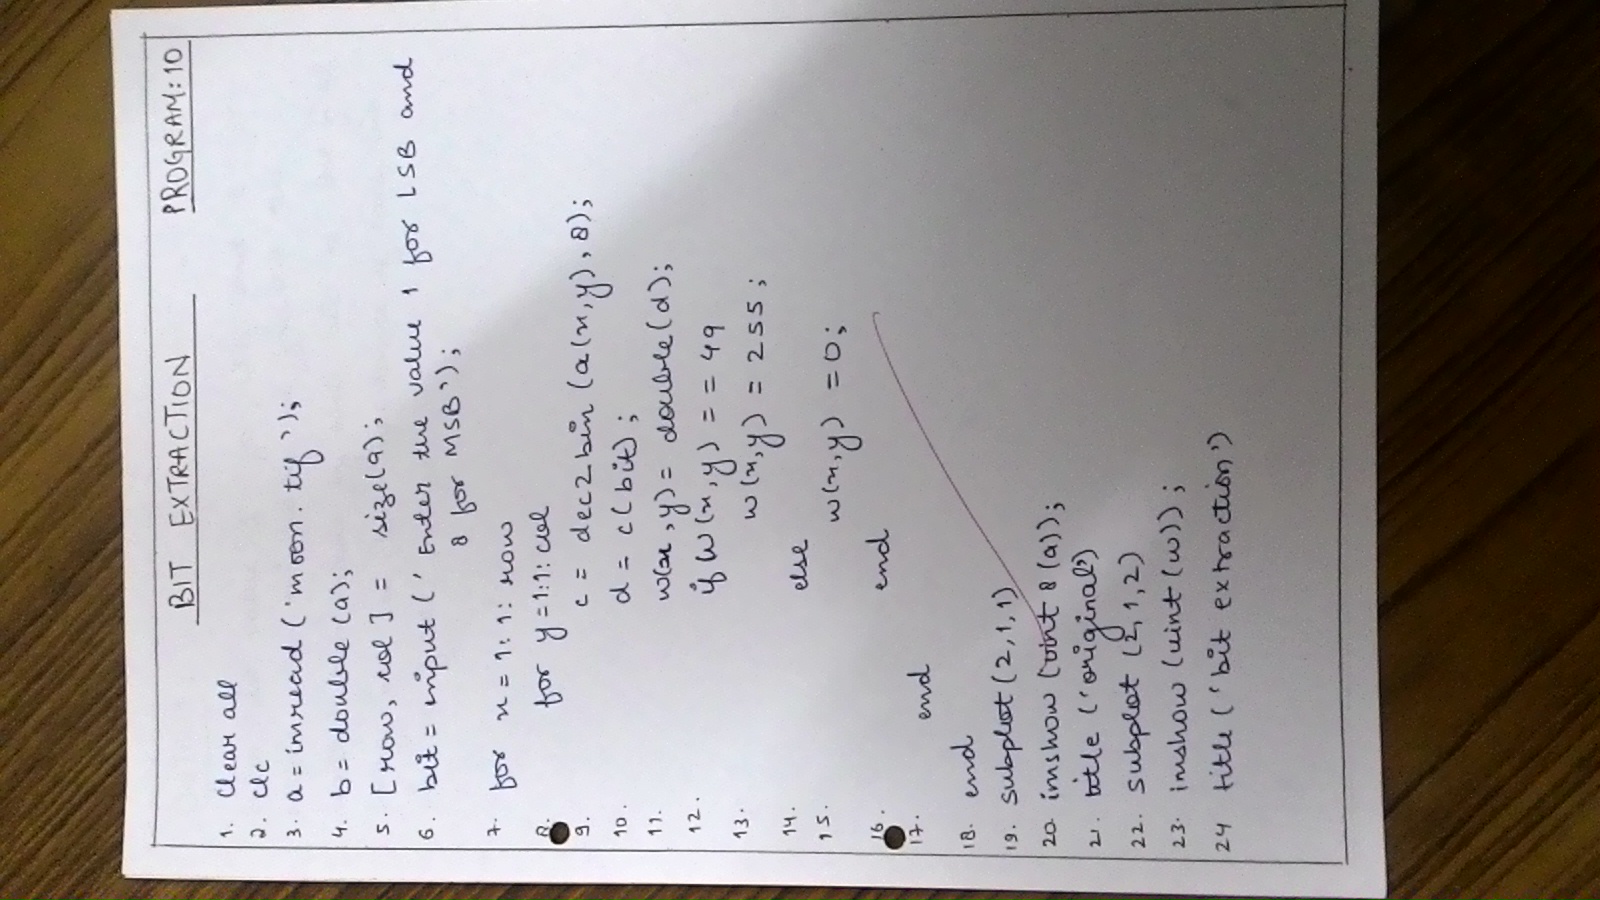 BIT EXTRACTION PROGRAM: 10
1. Clear all
2. clc
3. a = imread ('moon. tif ');
4. b = double (a);
5. [row, col ] = size(a);
6. bit = input (' Enter the value 1 for LSB and
8 for MSB');
7. for x = 1: 1: row
8. for y = 1:1: col
9. c = dec2bin (a(x,y), 8);
10. d = c(bit);
11. w(x ,y) = double(d);
12. if W(x,y) = = 49
13. w(x,y) = 255;
14. else
15. w(x,y) = 0;
16. end
17. end
18. end
19. subplot (2,1,1)
20. imshow (uint 8 (a));
21. title ('original')
22. subplot (2,1,2)
23. imshow (uint (w));
24 title ('bit extraction')